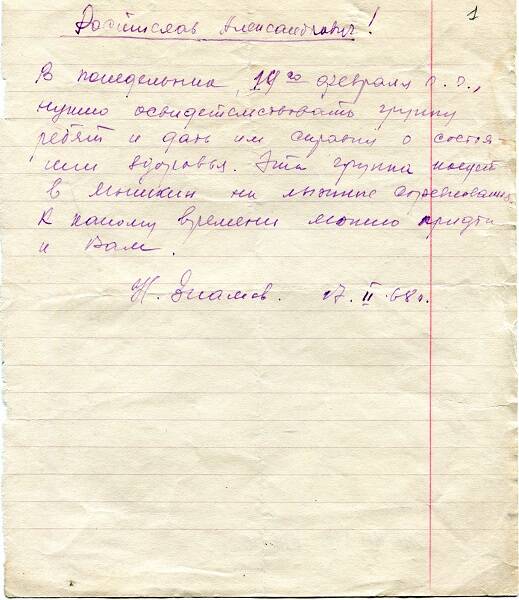 1
Ростислав Александрович!
В понедельник, 19го февраля с.г.,
нужно освидетельствовать группу
ребят и дать им справки о состоя-
нии здоровья. Эта группа поедет
в Мышкин на лыжные соревнования.
К какому времени можно придти
к Вам.
17. II 68г.